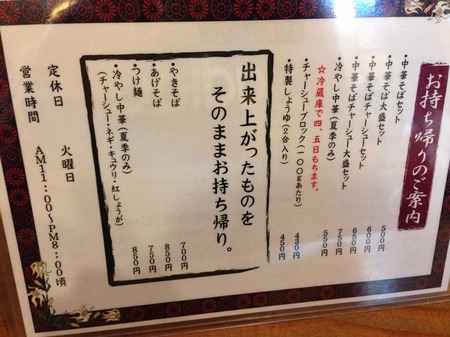 お持ち帰りのご案内
・中華そばセット 500円
・中華そば大盛セット 600円
・中華そばチャーシューセット 650円
・中華そばチャーシュー大盛セット 750円
・冷やし中華(夏季のみ) 550円
☆冷蔵庫で四、五日もちます。
・チャーシューブロック(100gあたり) 430円
・特製しょうゆ(2合入り) 450円
出来上がったものを
そのままお持ち帰り。
・やきそば 700円
・あげそば 850円
・つけ麺 750円
・冷やし中華(夏季のみ) 850円
(チャーシュー・ネギ・キュウリ・紅しょうが)
定休日 火曜日
営業時間 AM11:00〜PM8:00頃